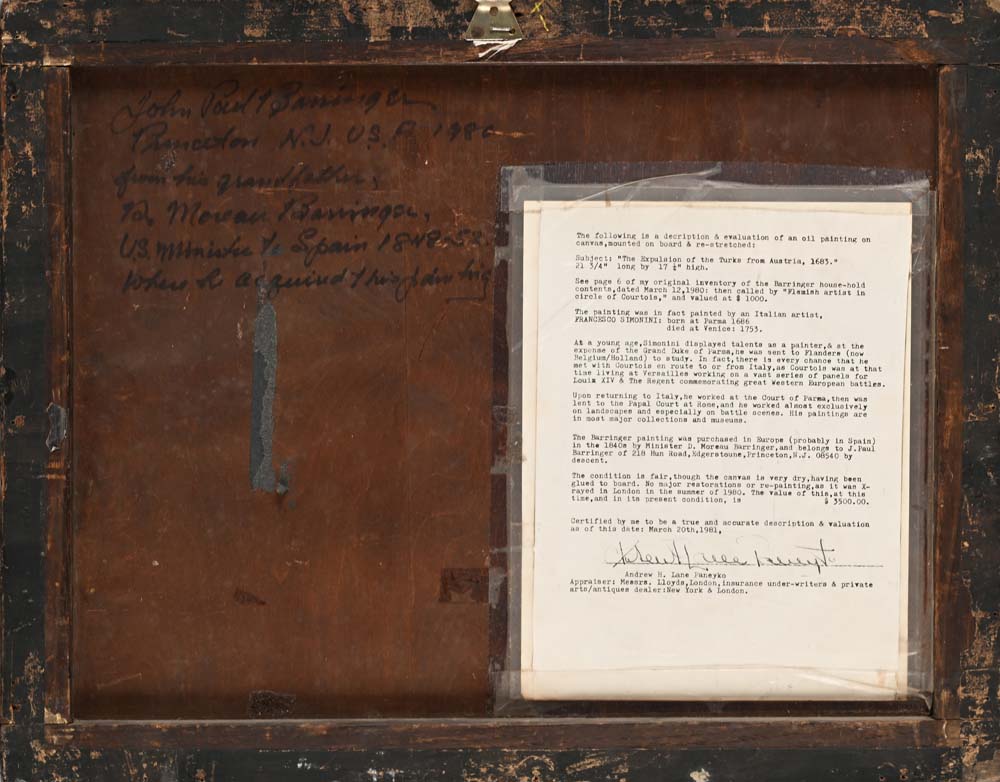 John Paul Barringer
Princeton N.J. U.S.A. 1980
from his grandfather,
D. Moreau Barringer,
U.S. Minister to Spain 1848-53
where he acquired this
The following is a decription & evaluation of an oil painting on
canvas,mounted on board & re-stretched:
Subject: "The Expulsion of the Turks from Austria, 1683."
21 3/4" long by 17 ½" high.
See page 6 of my original inventory of the Barringer house-hold
contents,dated March 12,1980: then called by "Flemish artist in
circle of Courtois," and valued at $ 1000.
The painting was in fact painted by an Italian artist,
FRANCESCO SIMONINI: born at Parma 1686
died at Venice: 1753.
At a young age,Simonini displayed talents as a painter,& at the
expense of the Grand Duke of Parma,he was sent to Flanders (now
Belgium/Holland) to study. In fact,there is every chance that he
met with Courtois en route to or from Italy,as Courtois was at that
time living at Versailles working on a vast series of panels for
Louis XIV & The Regent commemorating great Western European battles.
Upon returning to Italy,he worked at the Court of Parma,then was
lent to the Papal Court at Rome,and he worked almost exclusively
on landscapes and especially on battle scenes. His paintings are
in most major collections and museums.
The Barringer painting was purchased in Europe (probably in Spain)
in the 1840s by Minister D. Moreau Barringer,and belongs to J.Paul
Barringer of 218 Hun Road,Edgerstoune,Princeton,N.J. 08540 by
descent.
The condition is fair,though the canvas is very dry,having been
glued to board. No major restorations or re-painting,as it was X-
rayed in London in the summer of 1980. The value of this,at this
time,and in its present condition, is $ 3500.00.
Certified by me to be a true and accurate description & valuation
as of this date: March 20th,1981,
Andrew H. Lane Paneyko
Appraiser: Messrs. Lloyds,London,insurance under-writers & private
arts/antiques dealer:New York & London.